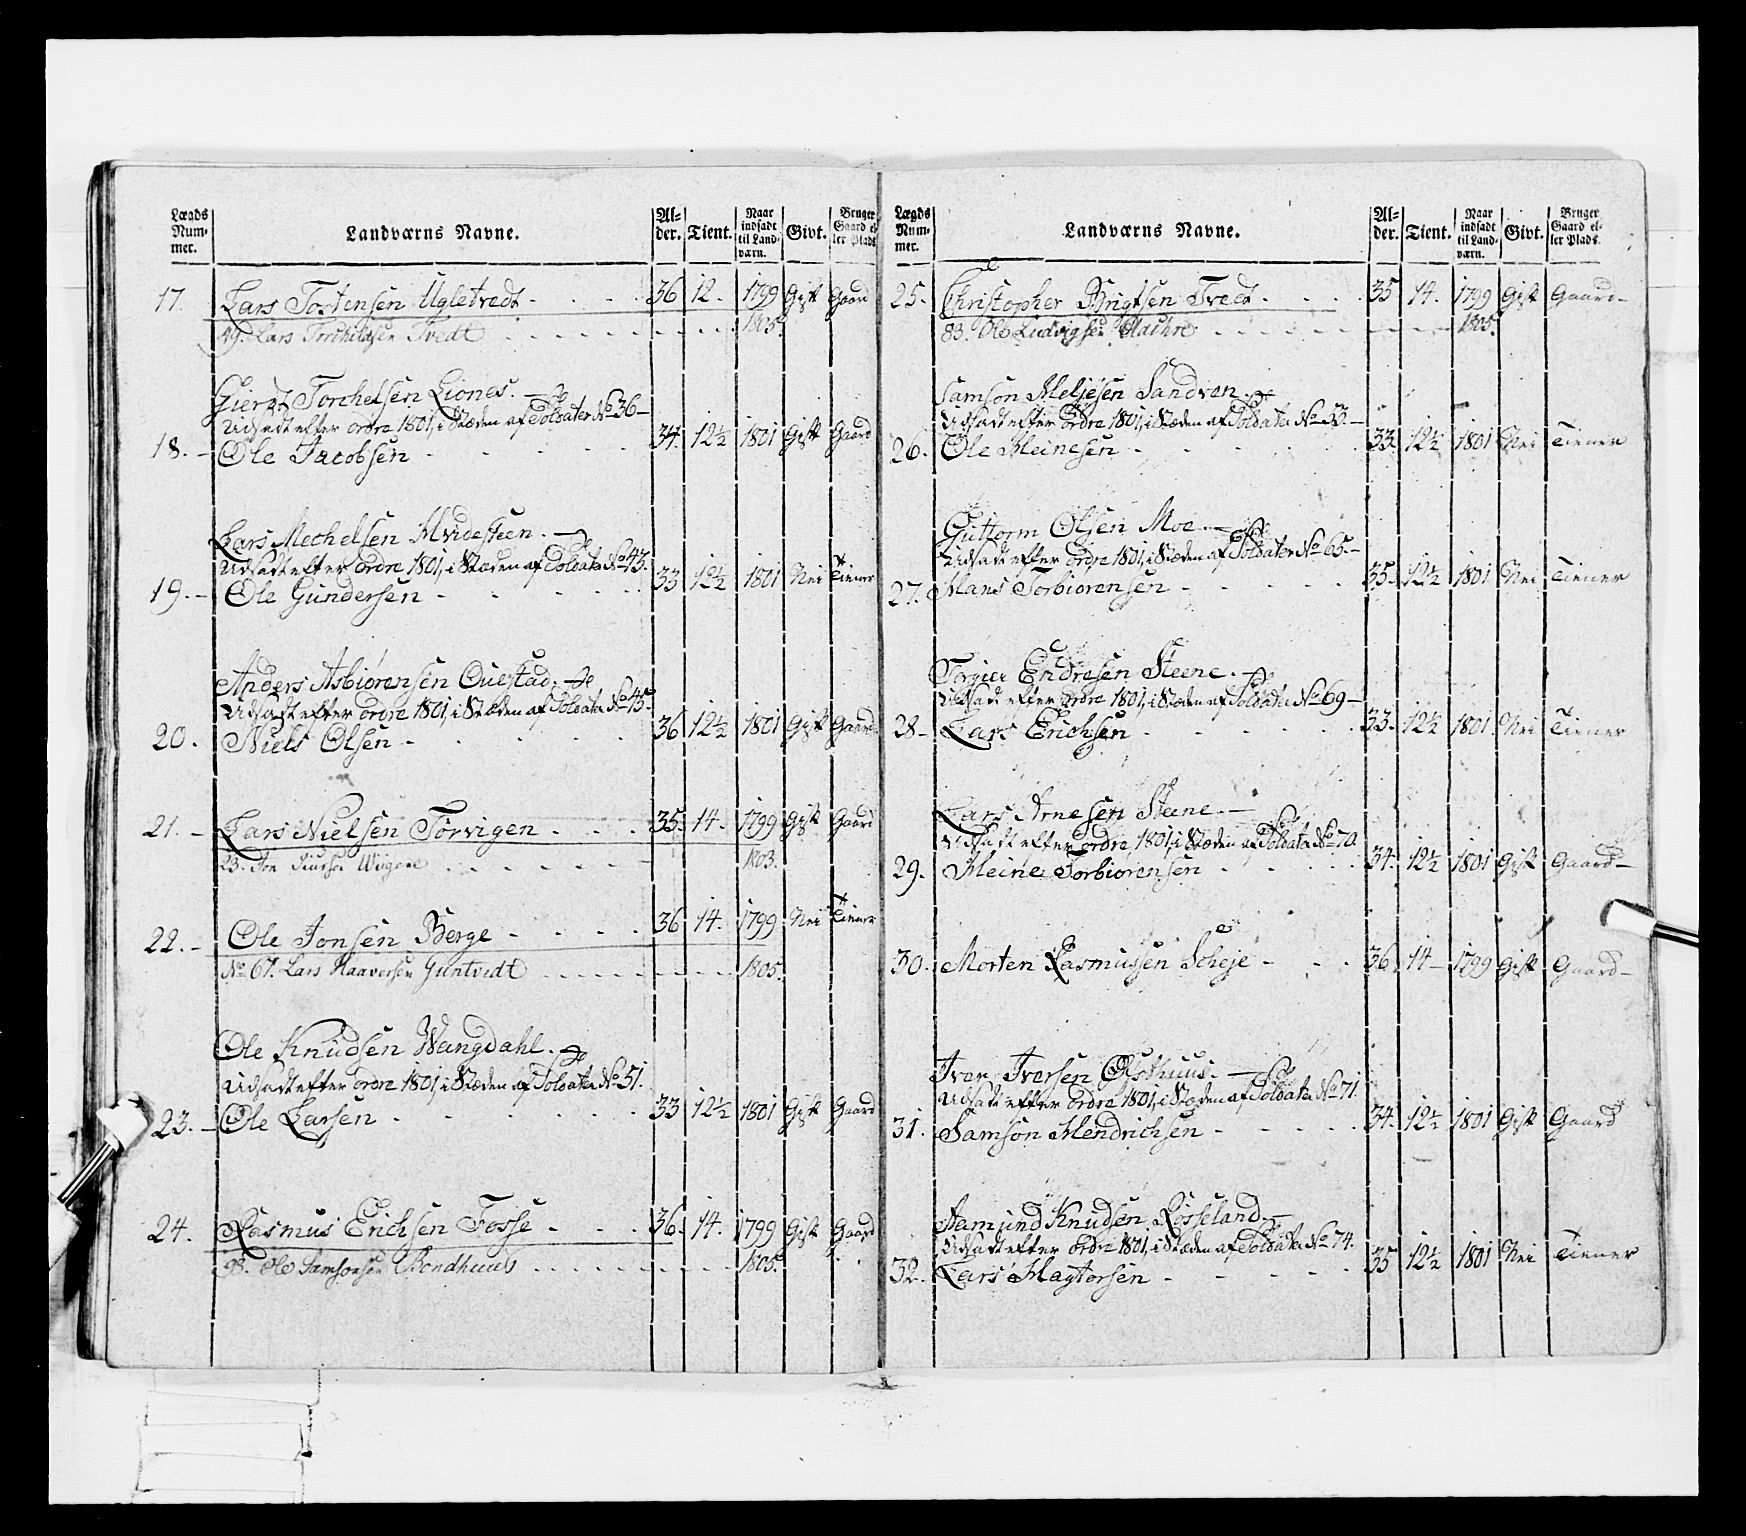 Lægds Num- mer. Landværns Navne. Al- der. Tient. Naar indsadt til Land- værn. Givt. Bruger Gaard el- ler Plads.
17. Lars Tostensen Ugletvedt 36 12. 1799 Gift Gaard
49. Lars Torchildsen Tvedt 1805.
Giert Torchelsen Liones.
Udsadt efter ordre 1801, i Stæden af Soldater No 36
18. Ole Jacobsen 34. 12½ 1801 Gift Gaard
Lars Mechelsen Hvidesteen.
Udsadt efter ordre 1801, i Stæden af Soldater No 43.
19. Ole Gundersen 33 12½ 1801 Nei Tiener
Anders Asbiørensen Ouestad.
Udsadt efter ordre 1801, i Stæden af Soldater No 45.
20. Niels Olsen 36 12½ 1801 Gift Gaard
21. Lars Nielsen Torvigen 35. 14. 1799 Gift Gaard
23. Jon 1803.
22. Ole Jonsen Berge 36 14. 1799 Nei Tiener
No 67. Lars Haaversen Guntvedt 1805.
Ole Knudsen Wangdahl.
Udsadt efter ordre 1801, i Stæden af Soldater No 51.
23. Ole Larsen 33 12½ 1801 Gift Gaard
24. Rasmus Erichsen Fosse 36. 14. 1799 Gift Gaard
98. Ole Samsonsen Bondhuus 1805.
Lægds Num- mer. Landværns Navne. Al- der. Tient. Naar indsadt til Land- værn. Givt. Bruger Gaard el- ler Plads.
25. Christopher Brigtsen Tvedt 35 14. 1799 Gift Gaard
83. Ole Ludvigsen 1805.
Samson Heljesen Sandven
Udsadt efter Ordre 1801, i Stæden af Soldater No 53.
26. Ole Heinesen 33. 12½ 1801 Nei Tiener
Guttorm Olsen Moe
Udsadt efter ordre 1801, i Stæden af Soldater No 65.
27. Hans Torbiørensen 35. 12½ 1801 Nei Tiener
Torgier Endresen Steene.
Udsadt efter ordre 1801, i Stæden af Soldater No 69
28. Lars Erichsen 33. 12½ 1801 Nei Tiener
Lars Arnesen Steene.
Udsadt efter ordre, 1801, i Stæden af Soldater No 70.
29. Heine Torbiørensen 34. 12½ 1801 Gift Gaard
30. Morten Rasmussen Scheje 36 14 1799 Gift Gaard
Iver Iversen Østhuus.
Udsadt efter ordre 1801, i Stæden af Soldater No 71.
31. Samson Hendrichsen 34. 12½ 1801 Gift Gaard
Aamund Knudsen Røsseland.
Udsadt efter ordre 1801, i Stæden af Soldater No 74.
32. Lars Hagtorsen 35 12½ 1801 Nei Tiener